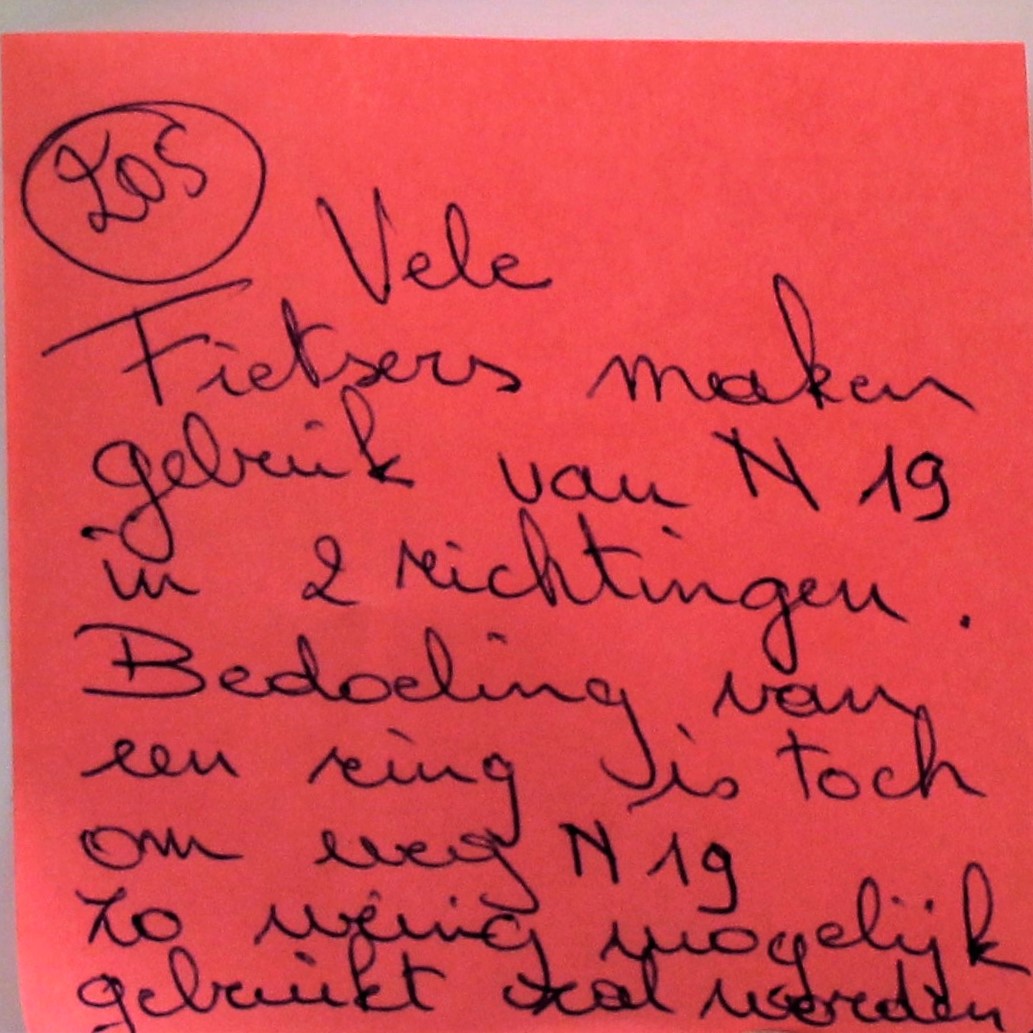 205
Vele
Fietsers maken
gebruik van N 19
in 2 richtingen.
Bedoeling van
een ring is toch
om weg N 19
zo weinig mogelijk
gebruikt zal worden